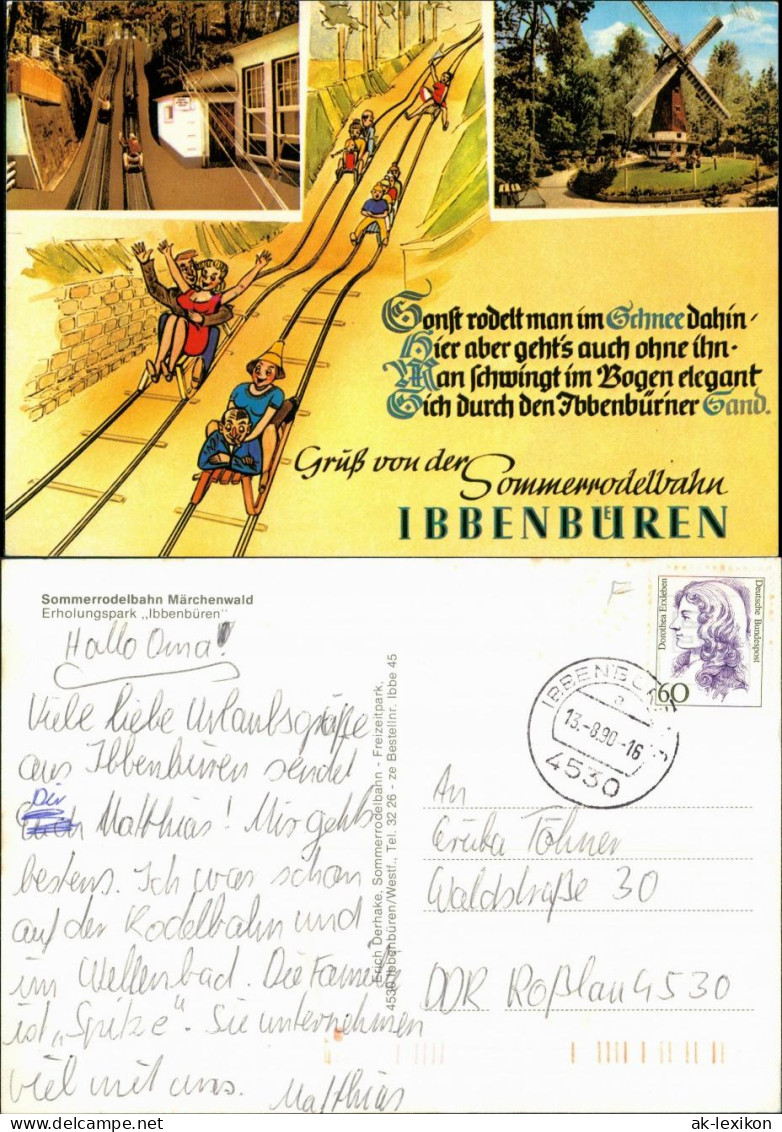 Sonst rodelt man im Schnee dahin,
Hier aber geht's auch ohne ihn.
Man schwingt im Bogen elegant
Sich durch den Ibbenbür'ner Sand.
Gruß von der
Sommerrodelbahn
IBBENBÜREN
Sommerrodelbahn Märchenwald
Erholungspark „Ibbenbüren"
Hallo Oma!
Viele liebe Urlaubsgrüße
aus Ibbenbüren sendet
Dir
Matthias! Mir geht's
bestens. Ich war schon
auf der Rodelbahn und
im Wellenbad. Die Familie
ist „Spitze". Sie unternehmen
viel mit uns.
Matthias
Erich Derhake, Sommerrodelbahn - Freizeitpark,
4530 Ibbenbüren/Westf., Tel. 32 26 - ze Bestellnr. Ibbe 45
F
Dorothea Erxleben
Deutsche Bundespost
60
IBBENBÜREN
a
13.-8.90-16
4530
An
Töhner
Waldstraße 30
DDR Roßlau 4530
© ak-lexikon
ak-lexikon.com